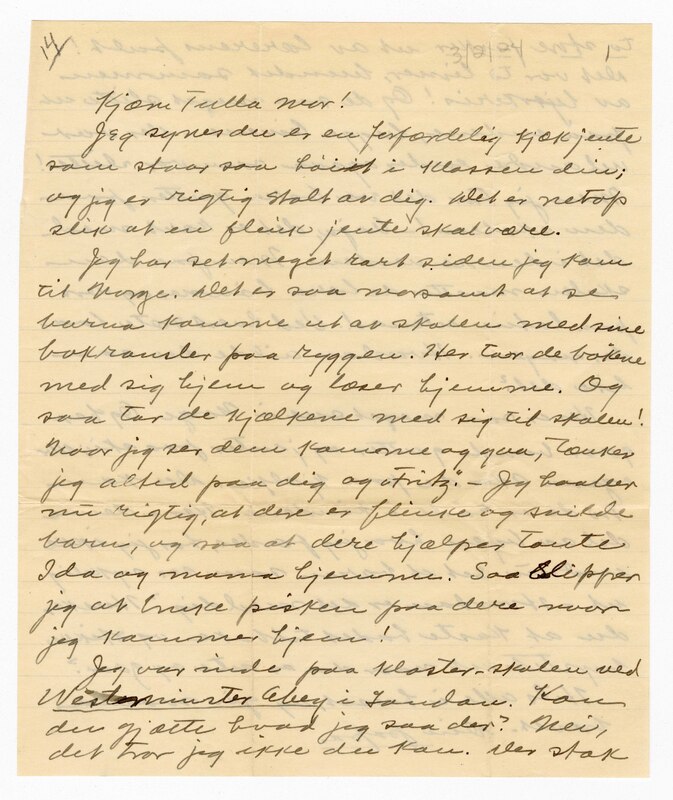 14
3/2/24
1
Kjære Tulla mor!
Jeg synes du er en forfærdelig kjæk jente
som staar saa høit i klassen din;
og jeg er rigtig stolt av dig. Det er netop
slik at en flink jente skal være.
Jeg har set meget rart siden jeg kom
til Norge. Det er saa morsomt at se
barna komme ut av skolen med sine
bokransler paa ryggen. Her tar de bøkene
med sig hjem og læser hjemme. Og
saa tar de kjælkene med sig til skolen!
Naar jeg ser dem komme og gaa, tænker
jeg altid paa dig og "Fritz". – Jeg haaber
nu rigtig, at dere er flinke og snilde
barn, og saa at dere hjælper tante
Ida og mama hjemme. Saa slipper
jeg at bruke pisken paa dere naar
jeg kommer hjem!
Jeg var inde paa kloster-skolen ved
Westerminster Abey i London. Kan
du gjætte hvad jeg saa der? Nei,
det tror jeg ikke du kan. Der stak